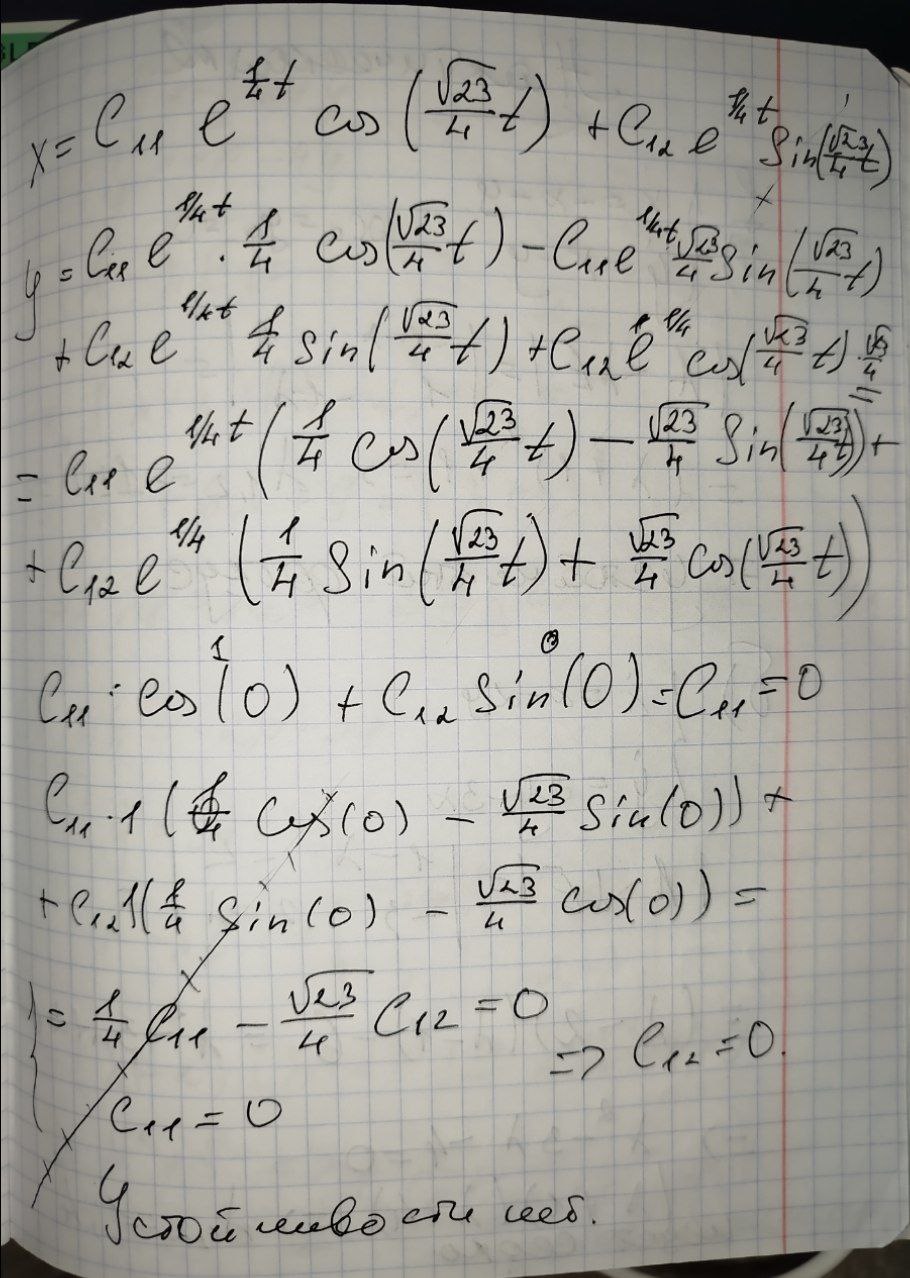 x = C₁₁ e^{1/4 t} cos(√23/4 t) + C₁₂ e^{1/4 t} Sin(√23/4 t)
y = C₁₁ e^{1/4 t} · 1/4 cos(√23/4 t) − C₁₁ e^{1/4 t} √23/4 Sin(√23/4 t)
+ C₁₂ e^{1/4 t} 1/4 sin(√23/4 t) + C₁₂ e^{1/4} cos(√23/4 t) · √23/4 =
= C₁₁ e^{1/4 t} (1/4 cos(√23/4 t) − √23/4 Sin(√23/4 t)) +
+ C₁₂ e^{1/4} (1/4 Sin(√23/4 t) + √23/4 cos(√23/4 t))
1 0
C₁₁ · cos(0) + C₁₂ Sin(0) = C₁₁ = 0
C₁₁ · 1 (1/4 cos(0) − √23/4 Sin(0)) +
+ C₁₂ 1(1/4 Sin(0) − √23/4 cos(0)) =
{ = 1/4 C₁₁ − √23/4 C₁₂ = 0
=> C₁₂ = 0.
C₁₁ = 0
Устойчивости нет.